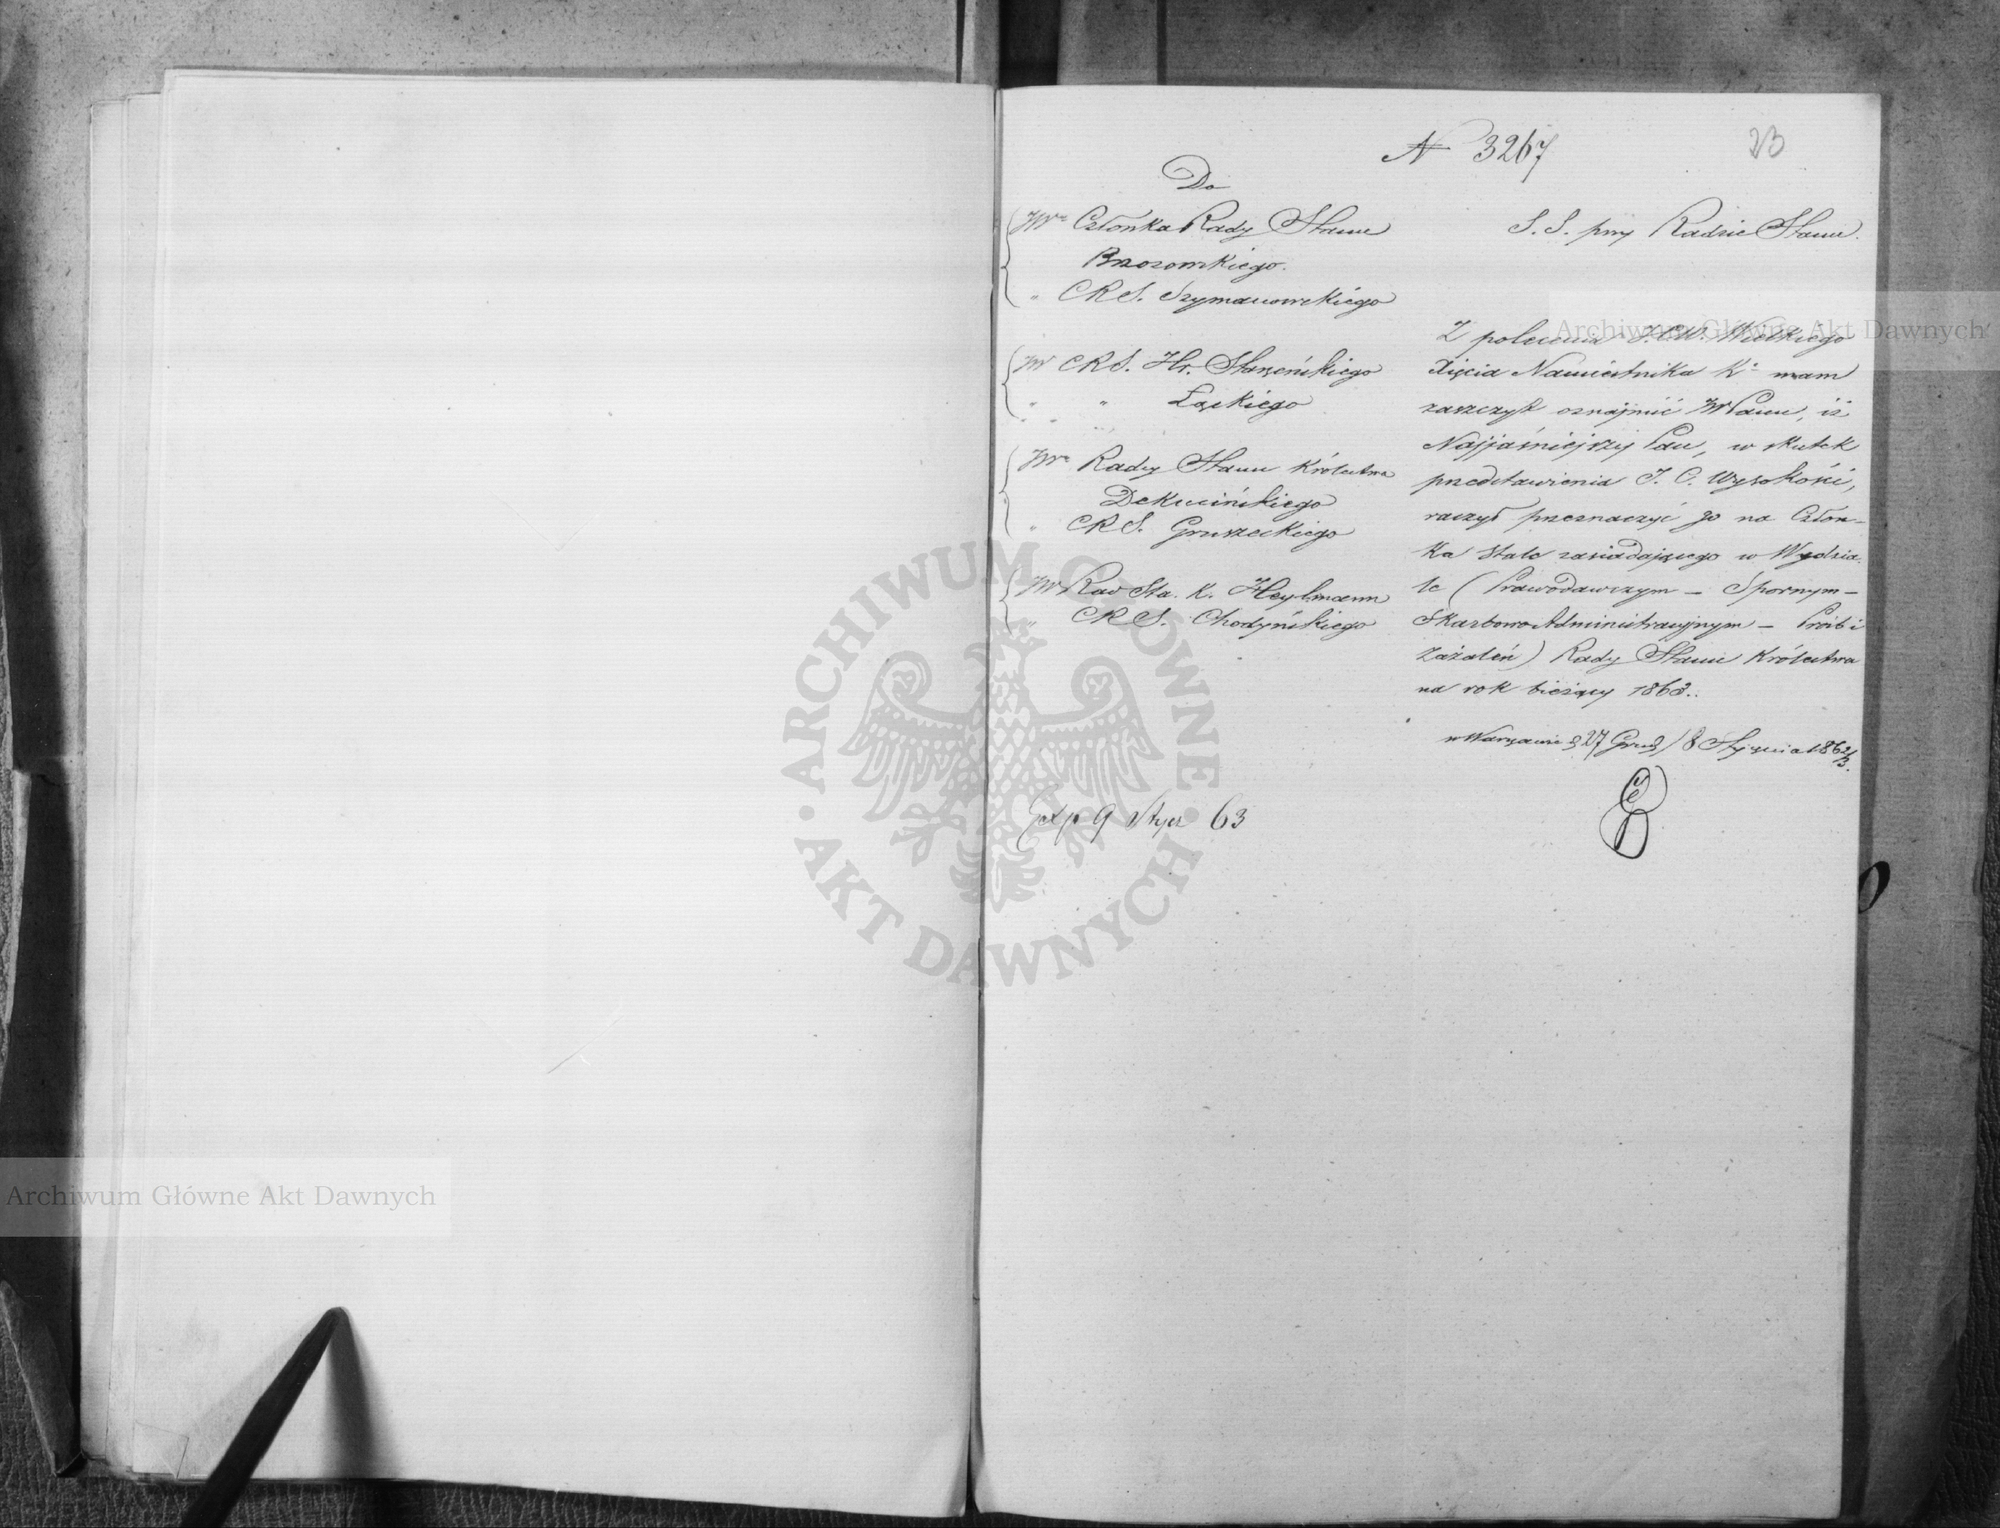 N 3267
23
Do
JW Członka Rady Stanu
Brzozowskiego.
" CRS. Szymanowskiego
JW CRS. Hr. Starzeńskiego
" " Łąckiego
JW Rady Stanu Królestwa
Dekucińskiego
" CRS. Gruszeckiego
JW Rad Sta. K. Heylmann
" CRS. Chodyńskiego
Exp 9 Stycz 63
S. S. przy Radzie Stanu.
Z polecenia J.C.W. Wielkiego
Xięcia Namiestnika K. mam
zaszczyt oznajmić JWPanu, iż
Najjaśniejszy Pan, w skutek
przedstawienia J. C. Wysokości,
raczył przeznaczyć go na Człon-
ka stale zasiadającego w Wydzia-
le (Prawodawczym – Spornym –
Skarbowo Administracyjnym – Próśb i
Zażaleń) Rady Stanu Królestwa
na rok bieżący 1863.
w Warszawie d 27 Grud / 8 Stycznia 1862/3.
Archiwum Główne Akt Dawnych
Archiwum Główne Akt Dawnych
ARCHIWUM GŁÓWNE
· AKT DAWNYCH ·